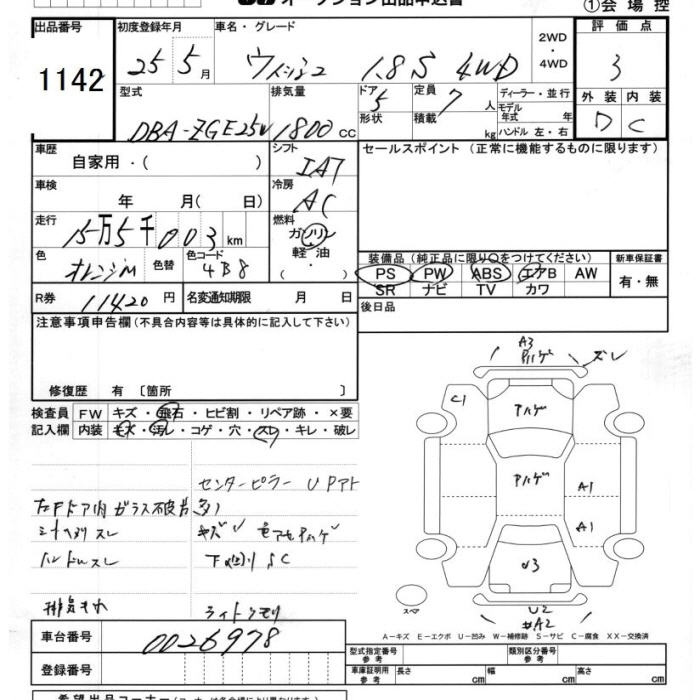 オークション出品申込書
①会場控
出品番号 1142
初度登録年月 25 5月
車名・グレード ウィッシュ 1.8S 4WD
2WD・4WD
評価点 3
外装 D 内装 C
型式 DBA-ZGE25W
排気量 1800 cc
ドア 5 形状
定員 7人 積載 kg
ディーラー・並行
モデル年式 年式
ハンドル 左・右
車歴 自家用・( )
シフト IAT
セールスポイント (正常に機能するものに限ります)
車検 年 月( 日)
冷房 AC
走行 15万5千003km
燃料 ガソリン・軽油・( )
色 オレンジM 色替 色コード 4B8
装備品 (純正品に限り○をつけてください)
新車保証書 有・無
PS PW ABS エアB AW
SR ナビ TV カワ
R券 11420円
名変通知期限 月 日
後日品
注意事項申告欄 (不具合内容等は具体的に記入して下さい)
修復歴 有〔箇所 〕
検査員記入欄
FW キズ・飛石・ヒビ割・リペア跡・×要
内装 キズ・汚レ・コゲ・穴・スレ・キレ・破レ
センターピラー U Pアト
ハンドルスレ
下廻り SC
ライトクモリ
A3 ハゲ ズレ
C1
ハゲ
ハゲ
A1
A1
U3
U2
A2
スペア
A－キズ E－エクボ U－凹み W－補修跡 S－サビ C－腐食 XX－交換済
車台番号 0026978
型式指定番号 参考
類別区分番号 参考
登録番号
車庫証明用 参考 長さ cm 幅 cm 高さ cm
希望出品コーナー